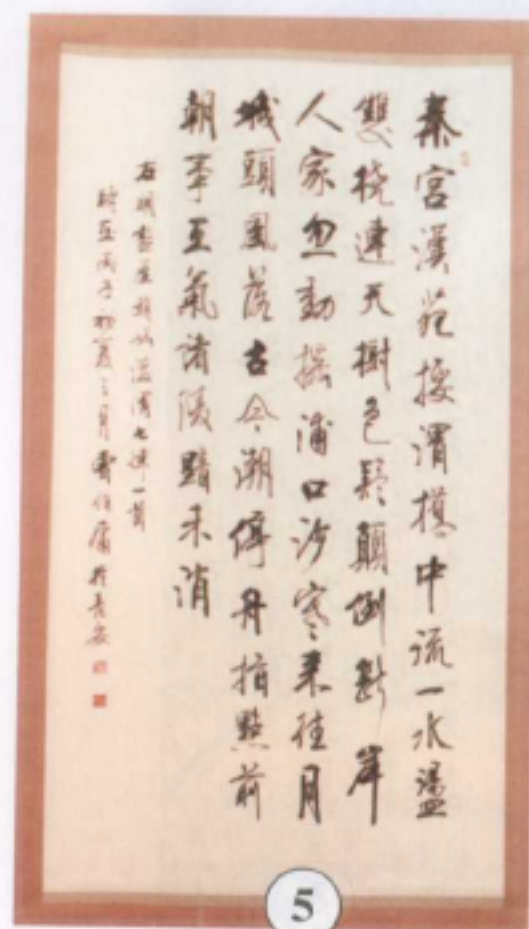 秦宫漢苑接渭橋中流一水盪
雙橈連天樹色疑顛倒斷岸
人家忽動搖浦口沙寒来往月
城頭風落古今潮停舟指點前
朝事王氣諸陵黯未消
右明彭 七律一首
時在丙子初夏之月 於長安
5